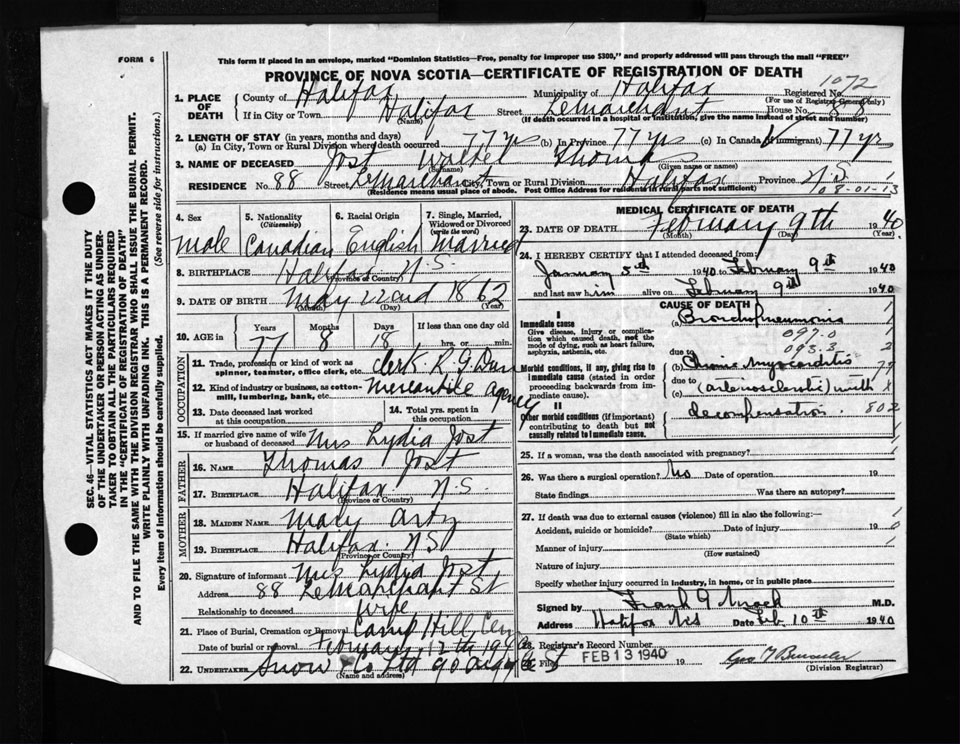 FORM 6
This form if placed in an envelope, marked "Dominion Statistics—Free, penalty for improper use $300," and properly addressed will pass through the mail "FREE"
PROVINCE OF NOVA SCOTIA—CERTIFICATE OF REGISTRATION OF DEATH
1072
1. PLACE OF DEATH
County of Halifax Municipality of Halifax Registered No.
(For use of Registrar General only)
If in City or Town Halifax Street LeMarchant House No. 88
(Name) (If death occurred in a hospital or institution, give the name instead of street and number)
2. LENGTH OF STAY (in years, months and days)
(a) In City, Town or Rural Division where death occurred 77 yrs (b) In Province 77 yrs (c) In Canada (if immigrant) 77 yrs
3. NAME OF DECEASED Jost Walter Thomas
(Surname) (Given name or names)
RESIDENCE No. 88 Street LeMarchant City, Town or Rural Division Halifax Province N.S. 1
(Residence means usual place of abode. Post Office Address for residents of rural parts not sufficient) 08-01-13
4. Sex
Male
5. Nationality (Citizenship)
Canadian
6. Racial Origin
English
7. Single, Married, Widowed or Divorced (write the word)
Married
8. BIRTHPLACE Halifax N.S.
(Province or Country)
9. DATE OF BIRTH May 22nd 1862
(Month) (Day) (Year)
10. AGE in Years Months Days If less than one day old
77 8 18 hrs. or min.
OCCUPATION
11. Trade, profession or kind of work as spinner, teamster, office clerk, etc. Clerk R. G. Dun
12. Kind of industry or business, as cotton-mill, lumbering, bank, etc. Mercantile agency
13. Date deceased last worked at this occupation
14. Total yrs. spent in this occupation
15. If married give name of wife or husband of deceased Mrs Lydia Jost
FATHER
16. NAME Thomas Jost
17. BIRTHPLACE Halifax N.S.
(Province or Country)
MOTHER
18. MAIDEN NAME Mary Artz
19. BIRTHPLACE Halifax N.S
(Province or Country)
20. Signature of informant Mrs Lydia Jost
Address 88 LeMarchant St
Relationship to deceased wife
21. Place of Burial, Cremation or Removal Camp Hill Cem
Date of burial or removal February 12th 1940
22. UNDERTAKER Snow & Co Ltd 90 Argyle St
(Name and Address)
MEDICAL CERTIFICATE OF DEATH
23. DATE OF DEATH February 9th 1940
(Month) (Day) (Year)
24. I HEREBY CERTIFY that I attended deceased from:
January 5th 1940 to February 9th 1940
and last saw him alive on February 9th 1940
CAUSE OF DEATH
I
Immediate cause
Give disease, injury or complication which caused death, not the mode of dying, such as heart failure, asphyxia, asthenia, etc.
(a) Bronchopneumonia
097-0
093-3
due to
Morbid conditions, if any, giving rise to immediate cause (stated in order proceeding backwards from immediate cause).
(b) Chronic Myocarditis
due to
(c) (arteriosclerotic) with
II
Other morbid conditions (if important) contributing to death but not causally related to immediate cause.
decompensation. 802
25. If a woman, was the death associated with pregnancy?
26. Was there a surgical operation? No Date of operation 19
State findings Was there an autopsy?
27. If death was due to external causes (violence) fill in also the following:—
Accident, suicide or homicide? Date of injury 19
(State which)
Manner of injury
(How sustained)
Nature of injury
Specify whether injury occurred in industry, in home, or in public place
Signed by Frank G Mack M.D.
Address Halifax NS Date Feb. 10th 1940
28. Registrar's Record Number
29. Filed FEB 13 1940 19
(Division Registrar)
SEC. 46—VITAL STATISTICS ACT MAKES IT THE DUTY
OF THE UNDERTAKER OR PERSON ACTING AS UNDERTAKER TO OBTAIN ALL THE PARTICULARS REQUIRED
IN THE "CERTIFICATE OF REGISTRATION OF DEATH"
AND TO FILE THE SAME WITH THE DIVISION REGISTRAR WHO SHALL ISSUE THE BURIAL PERMIT.
WRITE PLAINLY WITH UNFADING INK. THIS IS A PERMANENT RECORD.
Every item of information should be carefully supplied. (See reverse side for instructions.)